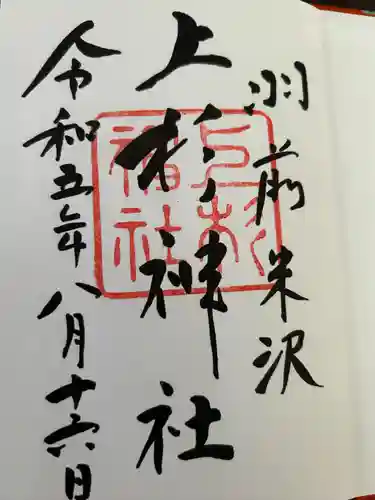 羽前米沢
上杉神社
令和五年八月十六日
上杉神社